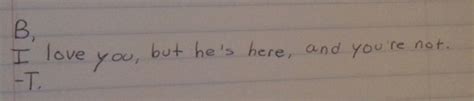 B,
I love you, but he's here, and you're not.
-T.